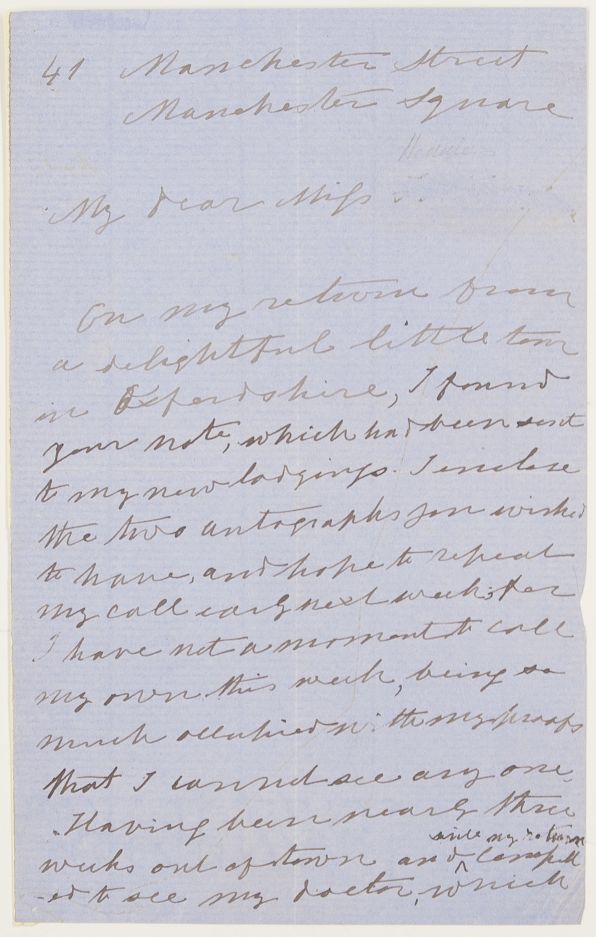 41 Manchester Street
Manchester Square
My dear Miss
On my return from
a delightful little tour
in Oxfordshire, I found
your note, which had been sent
to my new lodgings. I enclose
the two autographs you wished
to have, and hope to repeat
my call early next week; for
I have not a moment to call
my own this week, being so
much occupied with my proofs
that I cannot see any one.
Having been nearly three
since my return
weeks out of town and compell
-ed to see my doctor, which